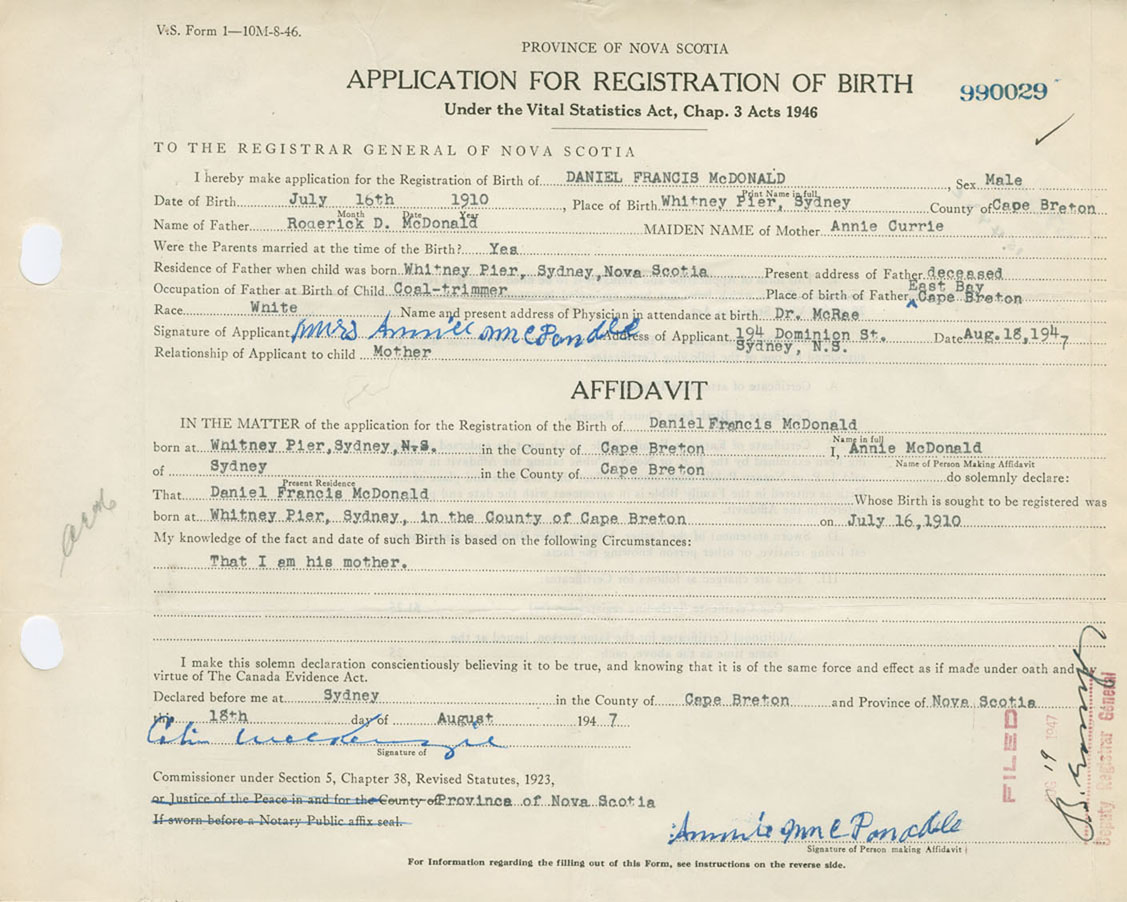 V.S. Form 1—10M-8-46.
PROVINCE OF NOVA SCOTIA
APPLICATION FOR REGISTRATION OF BIRTH
990029
Under the Vital Statistics Act, Chap. 3 Acts 1946
TO THE REGISTRAR GENERAL OF NOVA SCOTIA
I hereby make application for the Registration of Birth of DANIEL FRANCIS McDONALD, Sex Male
Print Name in full
Date of Birth July 16th 1910, Place of Birth Whitney Pier, Sydney County of Cape Breton
Month Date Year
Name of Father Roderick D. McDonald MAIDEN NAME of Mother Annie Currie
Were the Parents married at the time of the Birth? Yes
Residence of Father when child was born Whitney Pier, Sydney, Nova Scotia Present address of Father deceased
East Bay
Occupation of Father at Birth of Child Coal-trimmer Place of birth of Father Cape Breton
Race White Name and present address of Physician in attendance at birth Dr. McRae
Signature of Applicant Mrs Annie McDonald Address of Applicant 194 Dominion St. Date Aug. 18, 1947
Sydney, N.S.
Relationship of Applicant to child Mother
AFFIDAVIT
IN THE MATTER of the application for the Registration of the Birth of Daniel Francis McDonald
Name in full
born at Whitney Pier, Sydney, N.S. in the County of Cape Breton I, Annie McDonald
Name of Person Making Affidavit
of Sydney in the County of Cape Breton do solemnly declare:
Present Residence
That Daniel Francis McDonald Whose Birth is sought to be registered was
born at Whitney Pier, Sydney, in the County of Cape Breton on July 16, 1910
My knowledge of the fact and date of such Birth is based on the following Circumstances:
That I am his mother.
I make this solemn declaration conscientiously believing it to be true, and knowing that it is of the same force and effect as if made under oath and by
virtue of The Canada Evidence Act.
Declared before me at Sydney in the County of Cape Breton and Province of Nova Scotia
this 18th day of August 1947
Colin McKenzie
Signature of
Commissioner under Section 5, Chapter 38, Revised Statutes, 1923,
or Justice of the Peace in and for the County of Province of Nova Scotia
If sworn before a Notary Public affix seal.
Annie McDonald
Signature of Person making Affidavit
For Information regarding the filling out of this Form, see instructions on the reverse side.
FILED
AUG 19 1947
Deputy Registrar General